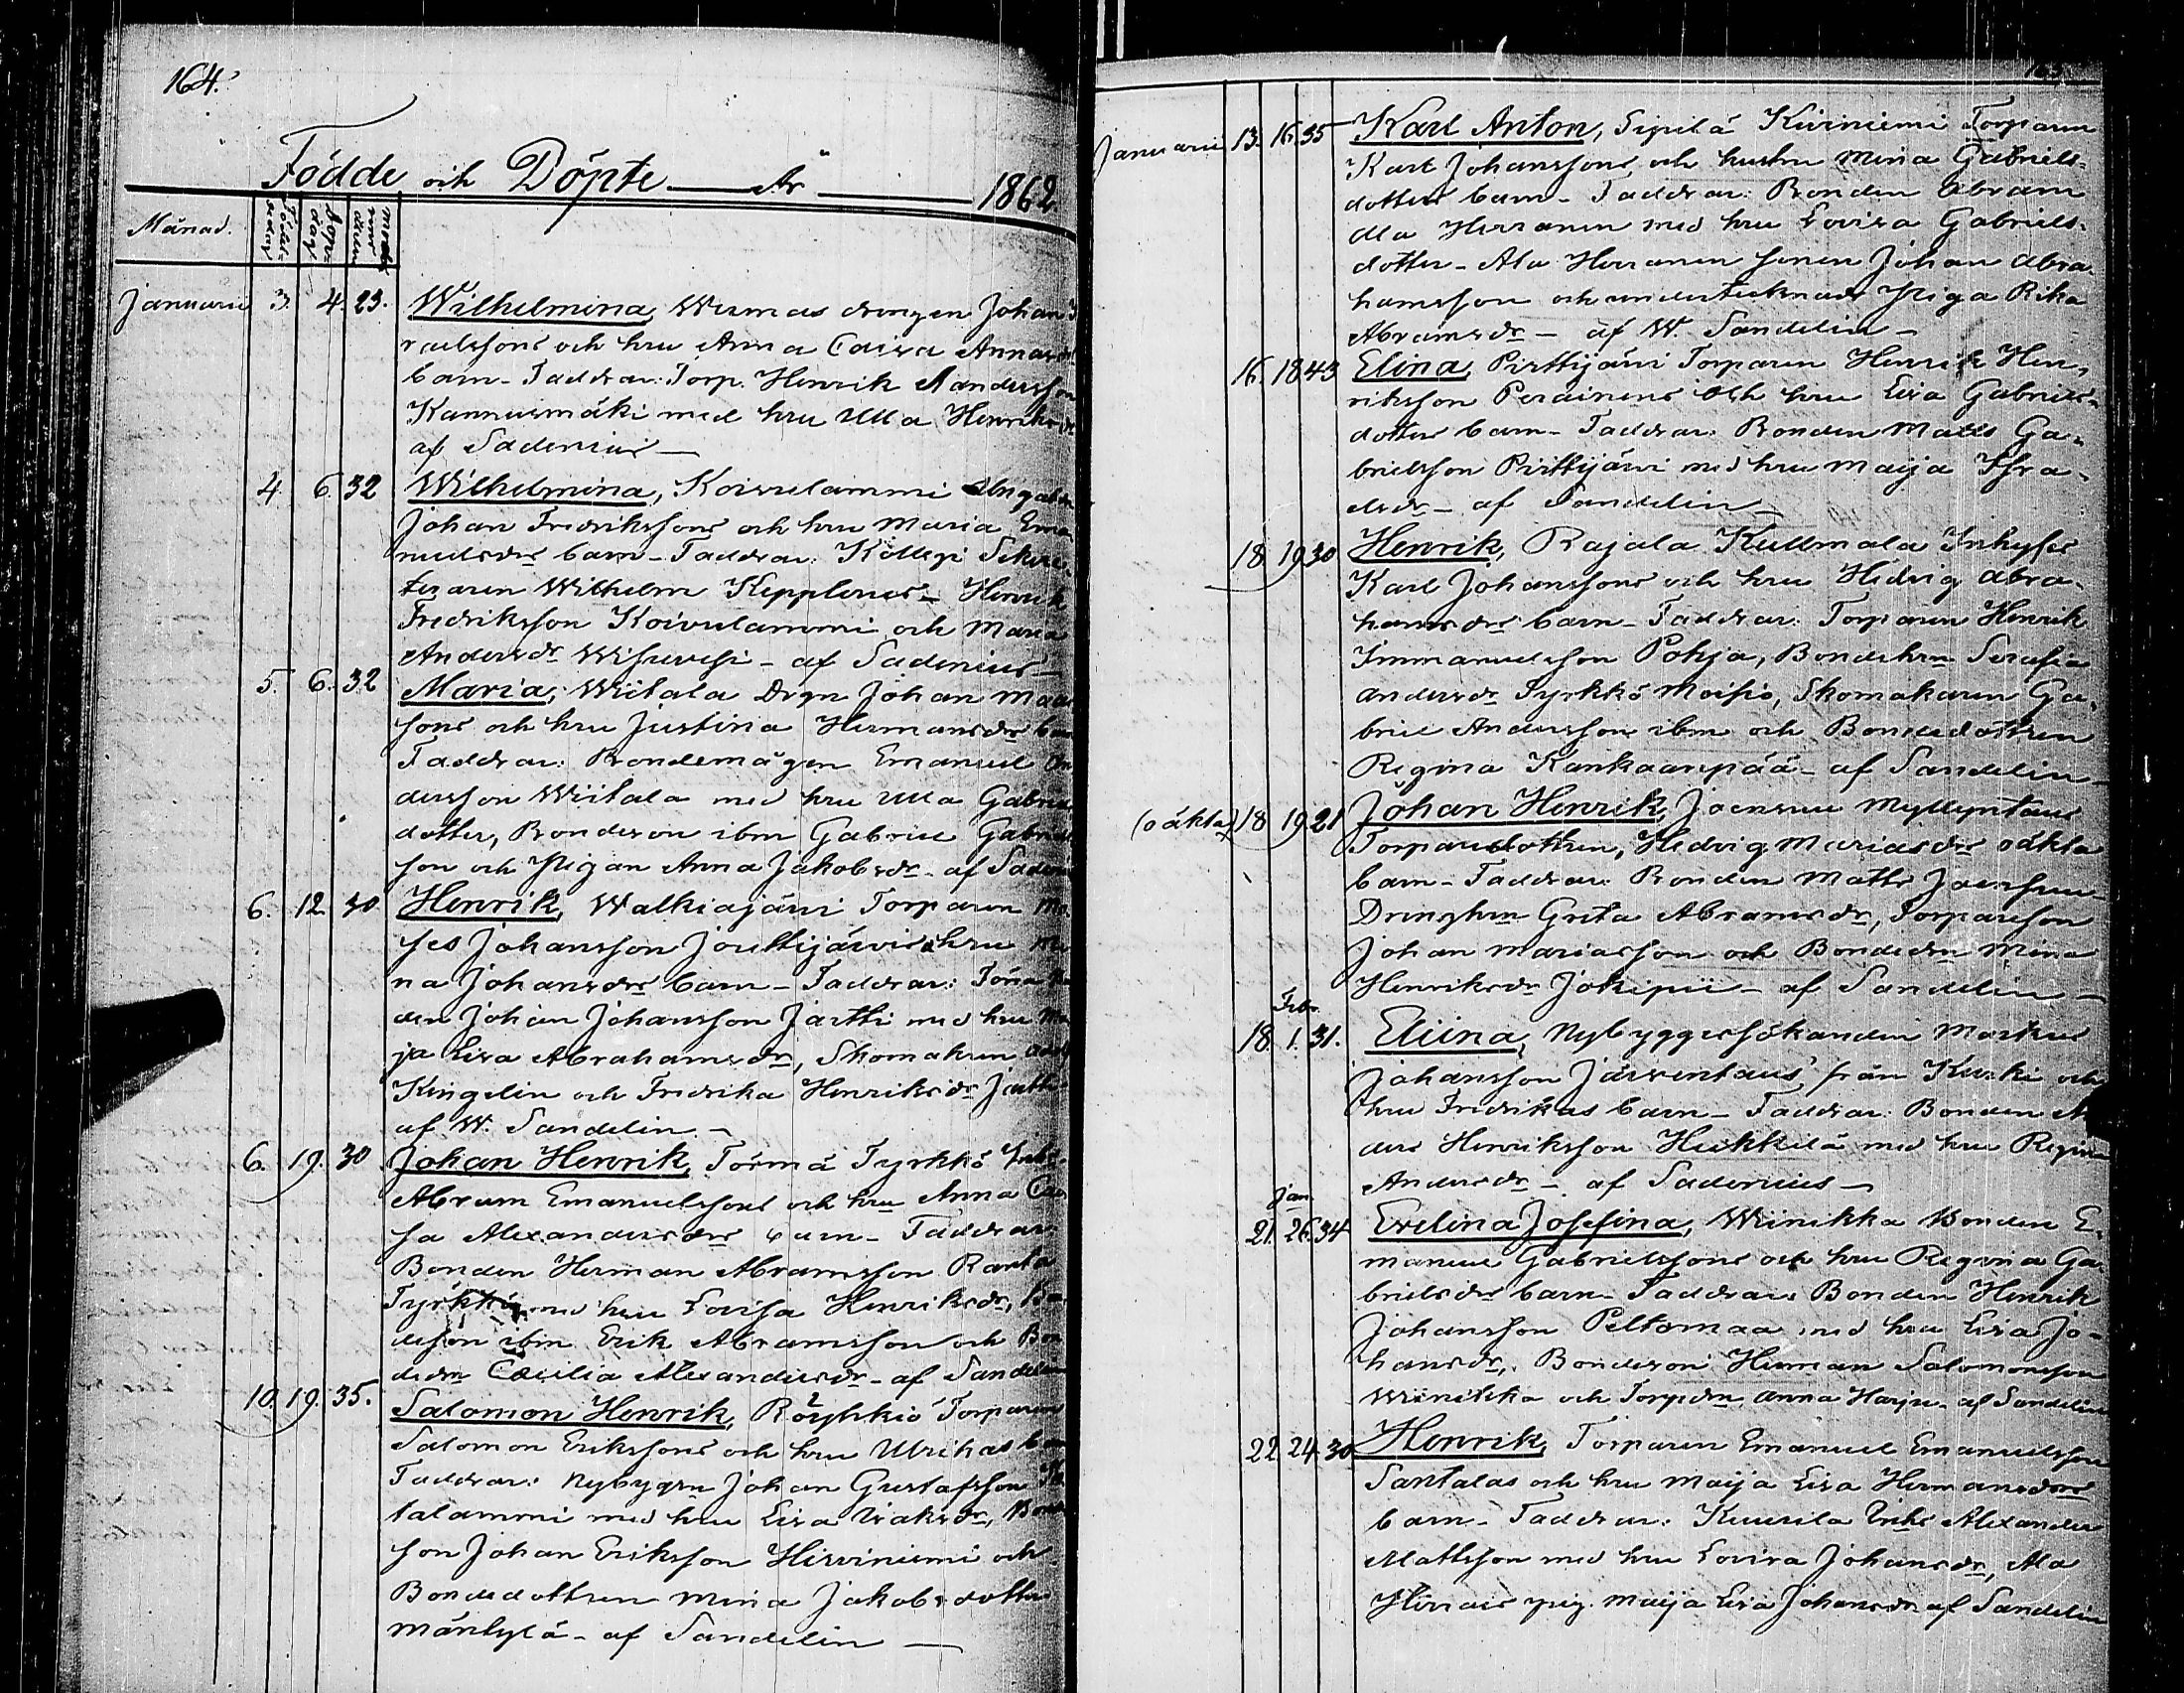 164.
Födde och Döpte År 1862.
Månad.
Januarii 3. 4. 23. Wilhelmina, Wermas drengen Johan
raelssons och hru Anna Caisa Annasdr
barn - Faddrar: Torp. Henrik Mandersson
Kannusmäki med hru Ulla Henriksdr
af Sadenius
4. 6. 32 Wilhelmina, Koivulammi
Johan Fredrikssons och hru Maria Ema
nuelsdrs barn - Faddrar: Kollegi Sekre-
teraren Wilhelm Kepplerus - Henrik
Fredriksson Koivulammi och Maria
Andersdr Wisuvesi - af Sadenius
5. 6. 32 Maria, Wiitala Drgn Johan
sons och hru Justina Hermansdrs
Faddrar: Bondemågen Emanuel An
dersson Wiitala med hru Ulla Gabriels
dotter, Bondeson ibm Gabriel Gabriels
son och Pigan Anna Jakobsdr - af Sadeni
6. 12. 30 Henrik, Walkiajärvi Torparen Mo
ses Johansson Jouttijärvis & hru Mi
na Johansdrs barn - Faddrar:
den Johan Johansson Jartti med hru Ma
ja Lisa Abrahamsdr, Skomakren
Kingelin och Fredrika Henriksdr Jartti
af W. Sandelin -
6. 19. 30 Johan Henrik, Törmä Tyrkkö Inhs
Abram Emanuelssons och hru Anna Cai
sa Alexandersdrs barn - Faddrar
Bonden Herman Abramsson Ranta
Tyrkkö med hru Lovisa Henriksdr, Bon
deson ibm Erik Abramsson och Bon
dedrn Cæcilia Alexandersdr - af Sandelin
10. 19. 35. Salomon Henrik, Röyhkiö Torparen
Salomon Erikssons och hru Ulrikas barn
Faddrar: Nybygrn Johan Gustafsson
talammi med hru Lisa Isaksdr, Bonde
son Johan Eriksson Hirviniemi och
Bondedottren Mina Jakobsdotter
Mäntylä - af Sandelin
Januarii 13. 16. 35 Karl Anton, Sipilä Kiviniemi Torparen
Karl Johanssons, och hustru Mina Gabriels-
dotters barn - Faddrar: Bonden Abram
Ala Herranen med hru Lovisa Gabriels-
dotter - Ala Herranen sonen Johan Abra
hamsson och undertecknads Piga Rika
Abramsdr - af W. Sandelin -
16. 18. 43 Elina, Pirttijärvi Torparen Henrik Hen-
riksson Peräinens och hru Lisa Gabriels-
dotters barn - Faddrar: Bonden Matts Ga-
brielsson Pirttijärvi med hru Maija Isra-
elsdr - af Sandelin -
18. 19. 30 Henrik, Rajala Kullmala Inhyses
Karl Johanssons och hru Hedvig Abra-
hamsdrs barn - Faddrar: Torparen Henrik
Immanuelsson Pohja, Bondehrn Serafia
Andersdr Syrkkö Moisio, Skomakaren Ga-
briel Andersson ibm och Bondedottren
Regina Kankaanpää - af Sandelin -
(oäkta) 18 19. 21 Johan Henrik, Joensuu Myllyntaus
Torparedottren, Hedvig Mariasdrs oäkta
barn - Faddrar: Bonden Matts Joensuu
Drenghrn Greta Abramsdr, Torpareson
Johan Mariasson och Bondedrn Mina
Henriksdr Jokipii - af Sandelin -
Febr.
18. 1. 31. Eliina, Nybyggessökanden Markus
Johansson Järventaus från Kurki och
hru Fredrikas barn - Faddrar: Bonden An
ders Henriksson Heikkilä med hru Regina
Andersdr - af Sadenius -
Jan.
21. 26. 34 Evelina Josefina, Weinikka Bonden E-
manuel Gabrielssons och hru Regina Ga
brielsdrs barn - Faddrar Bonden Henrik
Johansson Peltomaa med hru Lisa Jo-
hansdr, Bondeson Herman Salomonsson
Weinikka och Torpdrn Anna Harju - af Sandelin
22. 24. 30 Henrik, Torparen Emanuel Emanuelsson
Santalas och hru Maija Lisa Hermansdrs
barn - Faddrar: Kuurila Inhs Alexander
Mattsson med hru Lovisa Johansdr, Ala
pig. Maija Lisa Johansdr af Sandelin